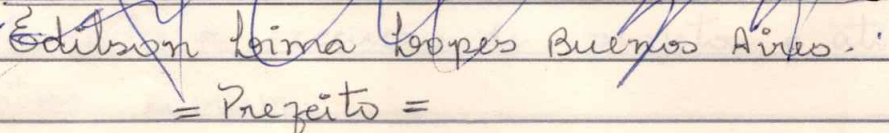 Edilson Lima Lopes Buenos Aires.
= Prefeito =